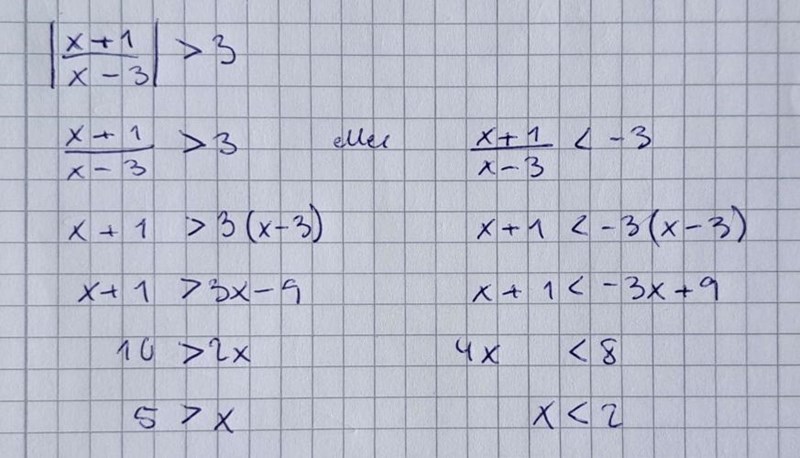 |x+1/x-3| > 3
x+1/x-3 > 3 eller x+1/x-3 < -3
x+1 > 3(x-3) x+1 < -3(x-3)
x+1 > 3x-9 x+1 < -3x+9
10 > 2x 4x < 8
5 > x x < 2